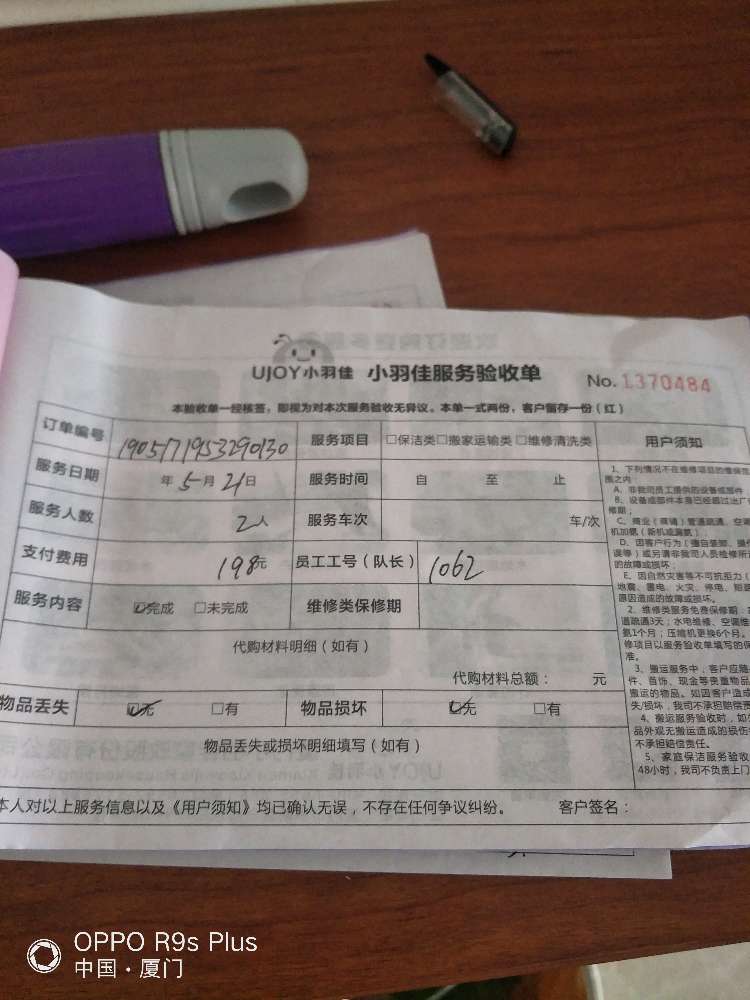 UJOY小羽佳 小羽佳服务验收单 No. 1370484
本验收单一经核签，即视为对本次服务验收无异议。本单一式两份，客户留存一份（红）
订单编号 1905171953290130 服务项目 □保洁类□搬家运输类□维修清洗类 用户须知
服务日期 年5月21日 服务时间 自 至 止
服务人数 2人 服务车次 车/次
支付费用 198元 员工工号（队长） 1062
服务内容 ☑完成 □未完成 维修类保修期
代购材料明细（如有）
代购材料总额： 元
物品丢失 ☑无 □有 物品损坏 ☑无 □有
物品丢失或损坏明细填写（如有）
本人对以上服务信息以及《用户须知》均已确认无误，不存在任何争议纠纷。 客户签名：
1、下列情况不在维修项目的维保范
围之内：
A、非我司员工提供的设备或部件
B、设备或部件本身已经超过出厂
修期；
C、商业（商铺）管道疏通、空调
机加氨（新机或漏氨）
D、因客户行为（擅自装卸、操作
误等）或另请非我司人员检修所
的故障或损坏；
E、因自然灾害等不可抗拒力（
地震、雷电、火灾、停电、短路
原因造成的故障或损坏。
2、维修类服务免费保修期：
道疏通3天；水电维修、空调维
氨1个月；压缩机更换6个月。
修项目以服务验收单填写的保
准。
3、搬运服务中，客户应随
件、首饰、现金等贵重物品
搬运的物品。如因客户造成
失/损坏，我司不承担赔偿责
4、搬运服务验收时，如
品外观无搬运造成的损伤
不承担赔偿责任。
5、家庭保洁服务验收
48小时，我司不负责上门
OPPO R9s Plus
中国·厦门